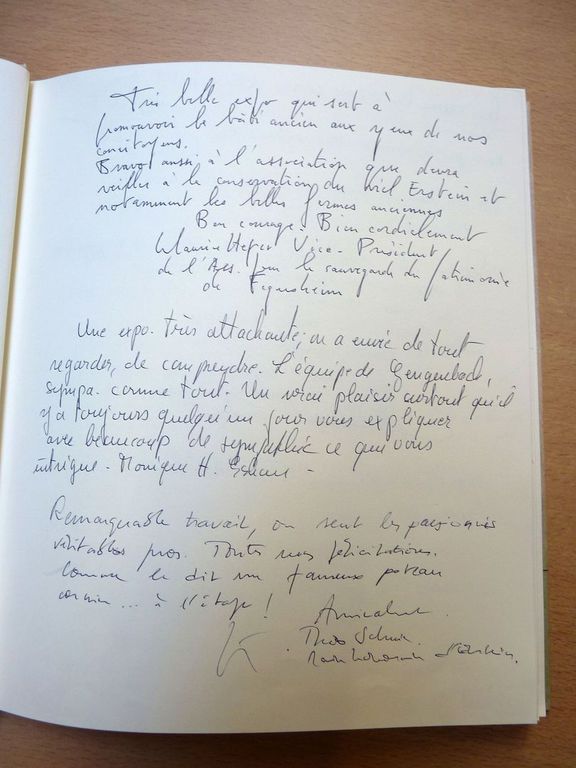 Très belle expo qui sert à
promouvoir le bâti ancien aux yeux de nos
concitoyens.
Bravo aussi à l'association que devra
veiller à la conservation du viel Erstein et
notamment les belles fermes anciennes
Bon courage. Bien cordialement
Maurice Heger Vice-Président
de l'Ass. pour la sauvegarde du patrimoine
de Fegersheim
Une expo. très attachante, on a envie de tout
regarder, de comprendre. L'équipe de Gengenbach,
sympa. comme tout. Un vrai plaisir surtout qu'il
y a toujours quelqu'un pour vous expliquer
avec beaucoup de sympathie ce qui vous
intrigue. Monique H.
Remarquable travail, on sent les passionnés
véritables pros. Toutes mes félicitations.
Comme le dit un fameux poteau
cornier... à l'étage !
Amicalement.
Théo